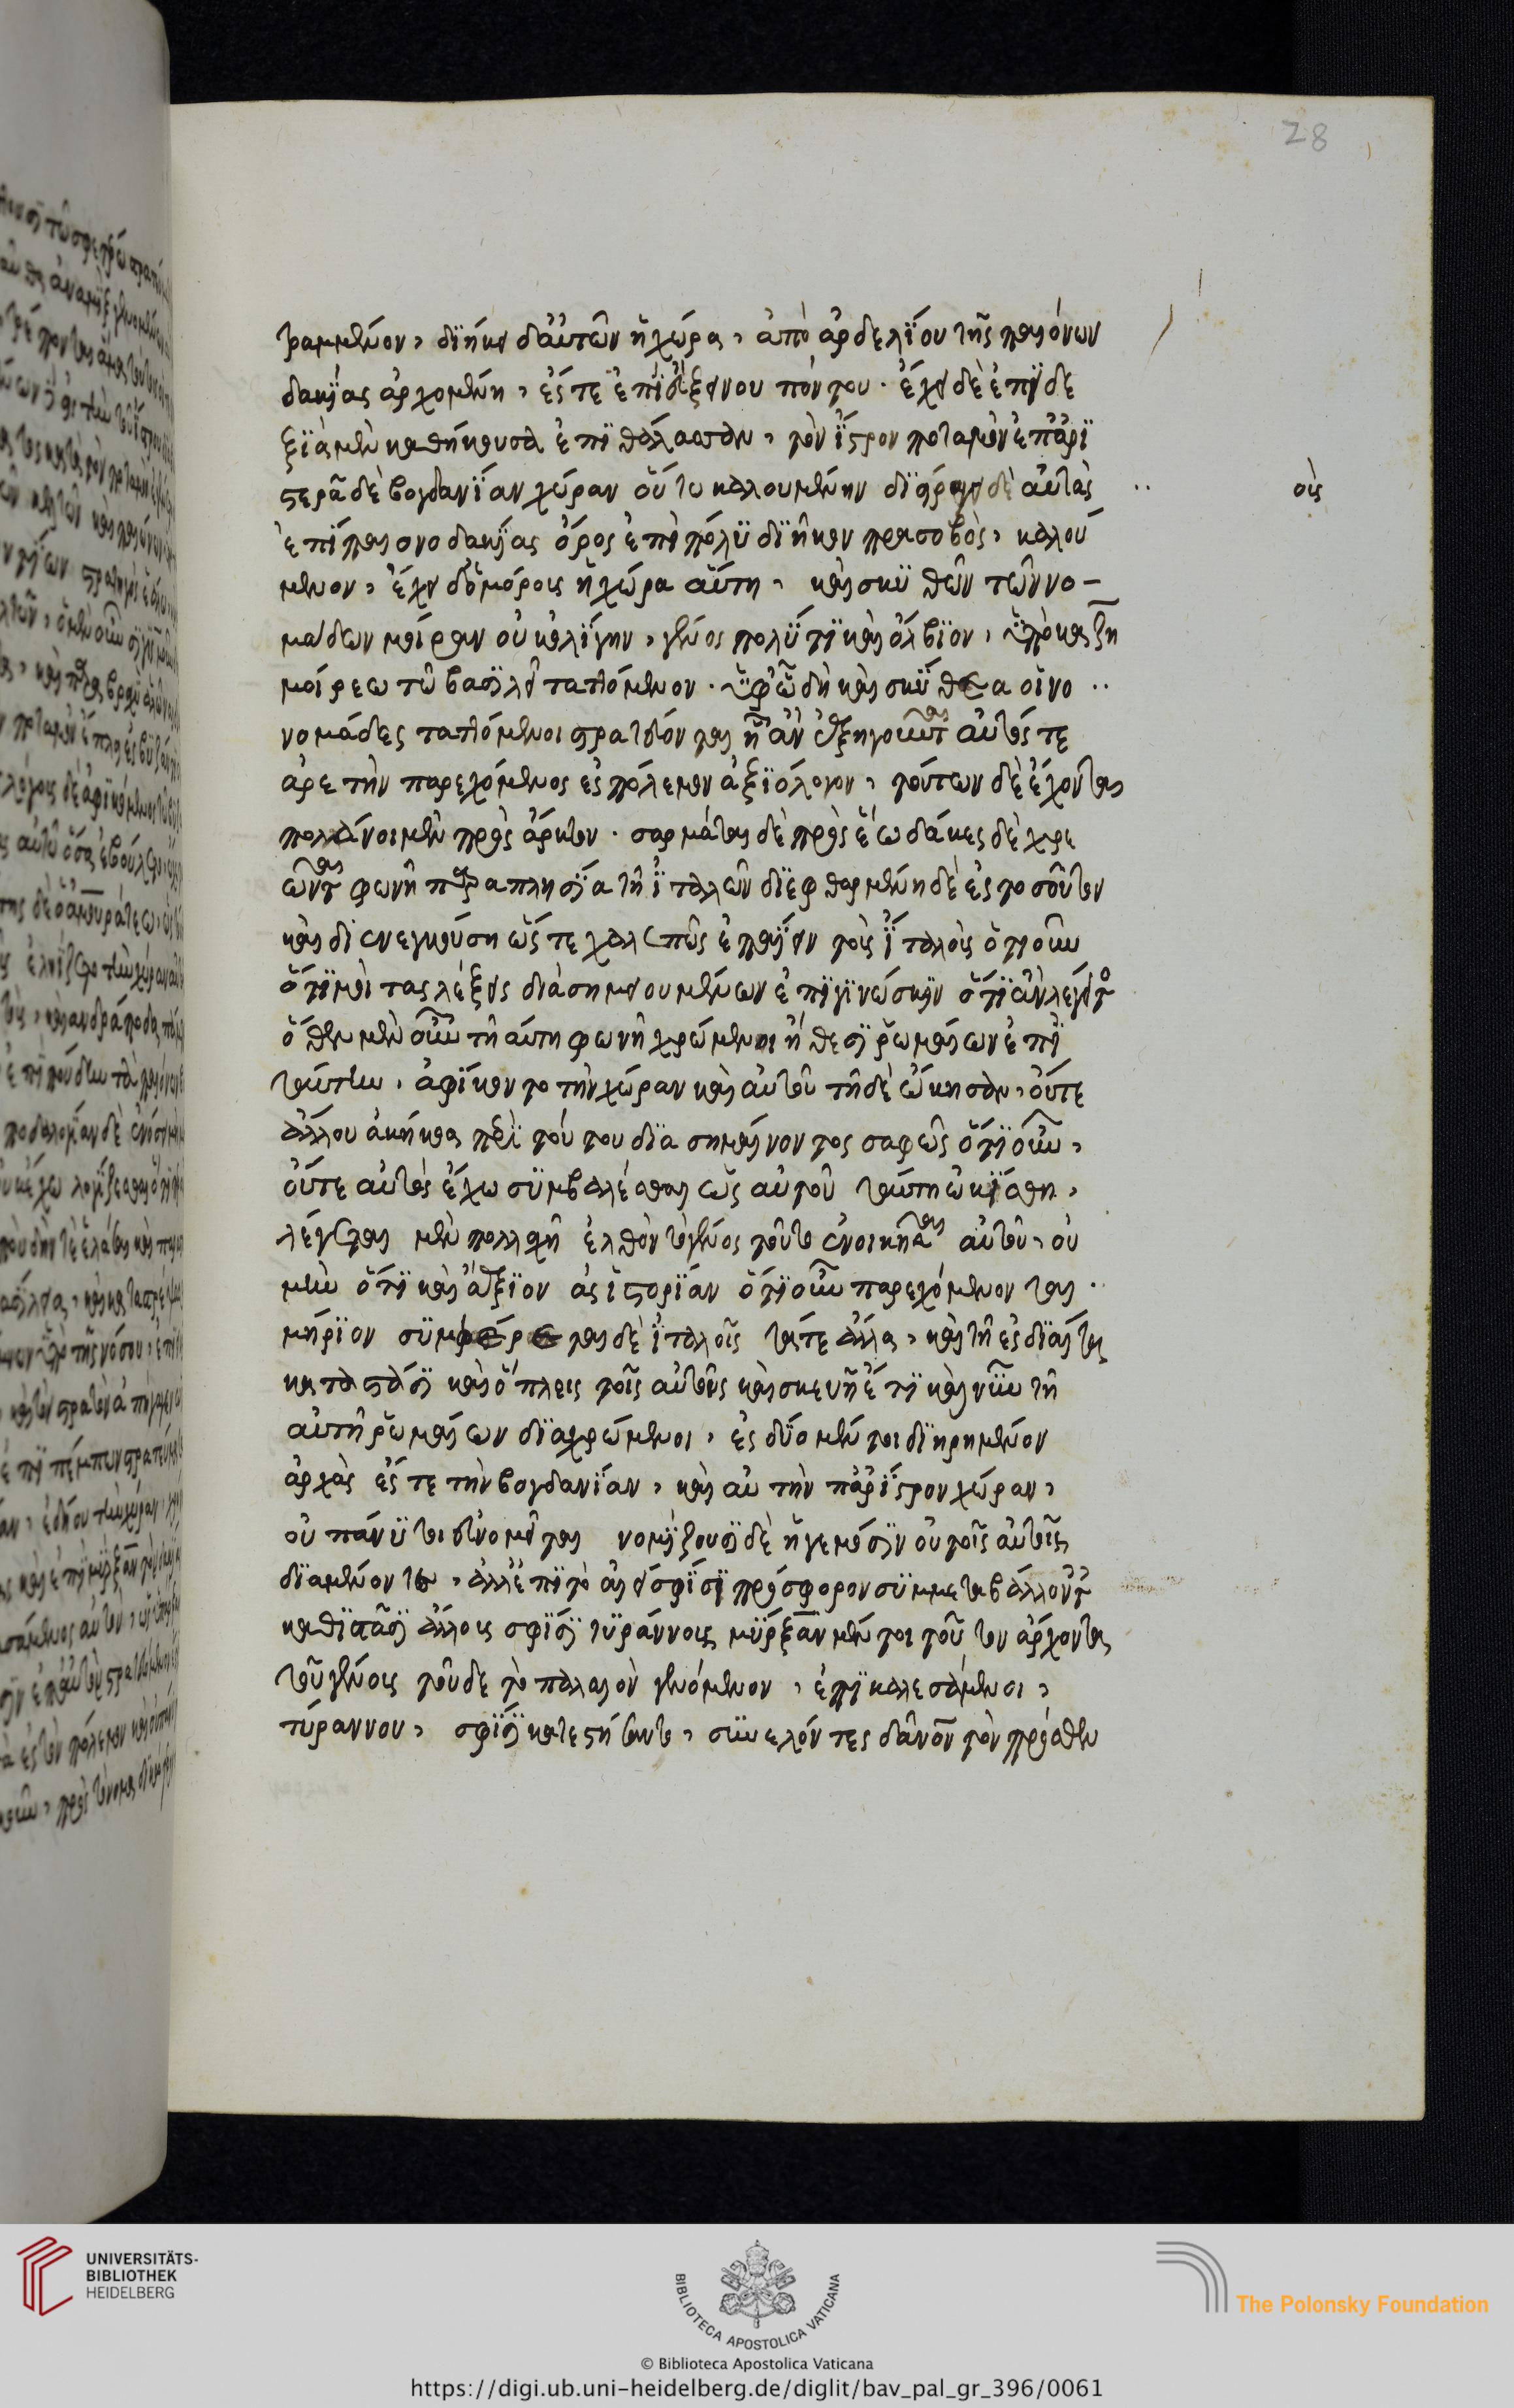 28
τραμμένον, διήκει δ' αὐτῶν ἡ χώρα, ἀπὸ ἀρδελίου τῆς παιόνων
δακίας ἀρχομένη, ἔς τε ἐπὶ εὔξεινον πόντου. ἔχει δὲ ἐπὶ δε
ξιὰ μὲν καθήκουσα ἐπὶ θάλασσαν, τὸν ἴστρον ποταμὸν ἐπ' ἀρι
στερᾶ δὲ βογδανίαν χώραν οὕτω καλουμένην διείργει δὲ αὐτὰς
οἷς
ἐπὶ παιονοδακίας ὄρος ἐπὶ πολὺ διῆκον πρασοβὸς, καλού
μενον, ἔχει δ' ὁμόροις ἡ χώρα αὕτη, καὶ σκυθῶν τῶν νο-
μάδων μοῖραν οὐκ ὀλίγην, γένος πολύ τι καὶ ὄλβιον, ὑπὸ καζη
μοίρεω τῶ βασιλεῖ ταττόμενον. ὑφ' ᾧ δὴ καὶ σκύθαι οἱ νο
νομάδες ταττόμενοι στρατεύονται ἧ ἂν ἐξηγοῦνται αὐτός τε
ἀρετὴν παρεχόμενος ἐς πόλεμον ἀξιόλογον, τούτων δὲ ἔχονται
πολάνοι μὲν πρὸς ἄρκτον. σαρμάται δὲ πρὸς ἕω δάκες δὲ χρ
ῶνται φωνῆ παραπλησία τῆ ἰταλῶν διεφθαρμένη δὲ ἐς τοσοῦτον
καὶ διενεγκούση ὥς τε χαλεπῶς ἐπαΐειν τοὺς ἰταλοὺς ὁτιοῦν
ὅτι μὴ τὰς λέξεις διασημειουμένων ἐπιγινώσκειν ὅ τι ἂν λέγοιτο
ὅθεν μὲν οὖν τῆ αὐτῆ φωνῆ χρώμενοι ἤθεσι ῥωμαίων ἐπὶ
ταύτην, ἀφίκοντο τὴν χώραν καὶ αὐτοῦ τῆδε ὤκησαν, οὔτε
ἄλλου ἀκήκοα περὶ τούτου διασημαίνοντος σαφῶς ὁτιοῦν,
οὔτε αὐτὸς ἔχω συμβαλέσθαι ὡς αὐτοῦ ταύτη ὠκίσθη,
λέγεται μὲν πολλαχῆ ἐλθὸν τὸ γένος τοῦτο ἐνοικῆσαι αὐτοῦ, οὐ
μὴν ὅ τι καὶ ἄξιον ἐς ἱστορίαν ὁτιοῦν παρεχόμενον τεκ
μήριον συμφέρεται δὲ ἰταλοῖς τά τε ἄλλα, καὶ τῆ ἐς δίαιταν
καταστάσει καὶ ὅπλοις τοῖς αὐτοῖς καὶ σκευῆ ἔτι καὶ νῦν τῆ
αὐτῆ ῥωμαίων διαχρώμενοι, ἐς δύο μέν τοι διηρημένον
ἀρχὰς ἔς τε τὴν βογδανίαν, καὶ αὐ τὴν παρ' ἴστρον χώραν,
οὐ πάνυ τοι εὐνομεῖται νομίζουσι δὲ ἡγεμόσιν οὐ τοῖς αὐτοῖς
διαμένοντες, ἀλλ' ἐπὶ τὸ αἰεὶ σφίσι πρόσφορον συμμεταβάλλοντες
καθιστᾶσι ἄλλοις σφίσι τυράννοις μύρξαν μέν τοι τοῦτον ἄρχοντα
τοῦ γένους τοῦδε τὸ παλαιὸν γενόμενον, ἐπικαλεσάμενοι,
τύραννον, σφίσι κατεστήσαντο, συνελόντες δᾶνον τὸν πρόσθεν
UNIVERSITÄTS-
BIBLIOTHEK
HEIDELBERG
BIBLIOTECA APOSTOLICA VATICANA
The Polonsky Foundation
© Biblioteca Apostolica Vaticana
https://digi.ub.uni-heidelberg.de/diglit/bav_pal_gr_396/0061